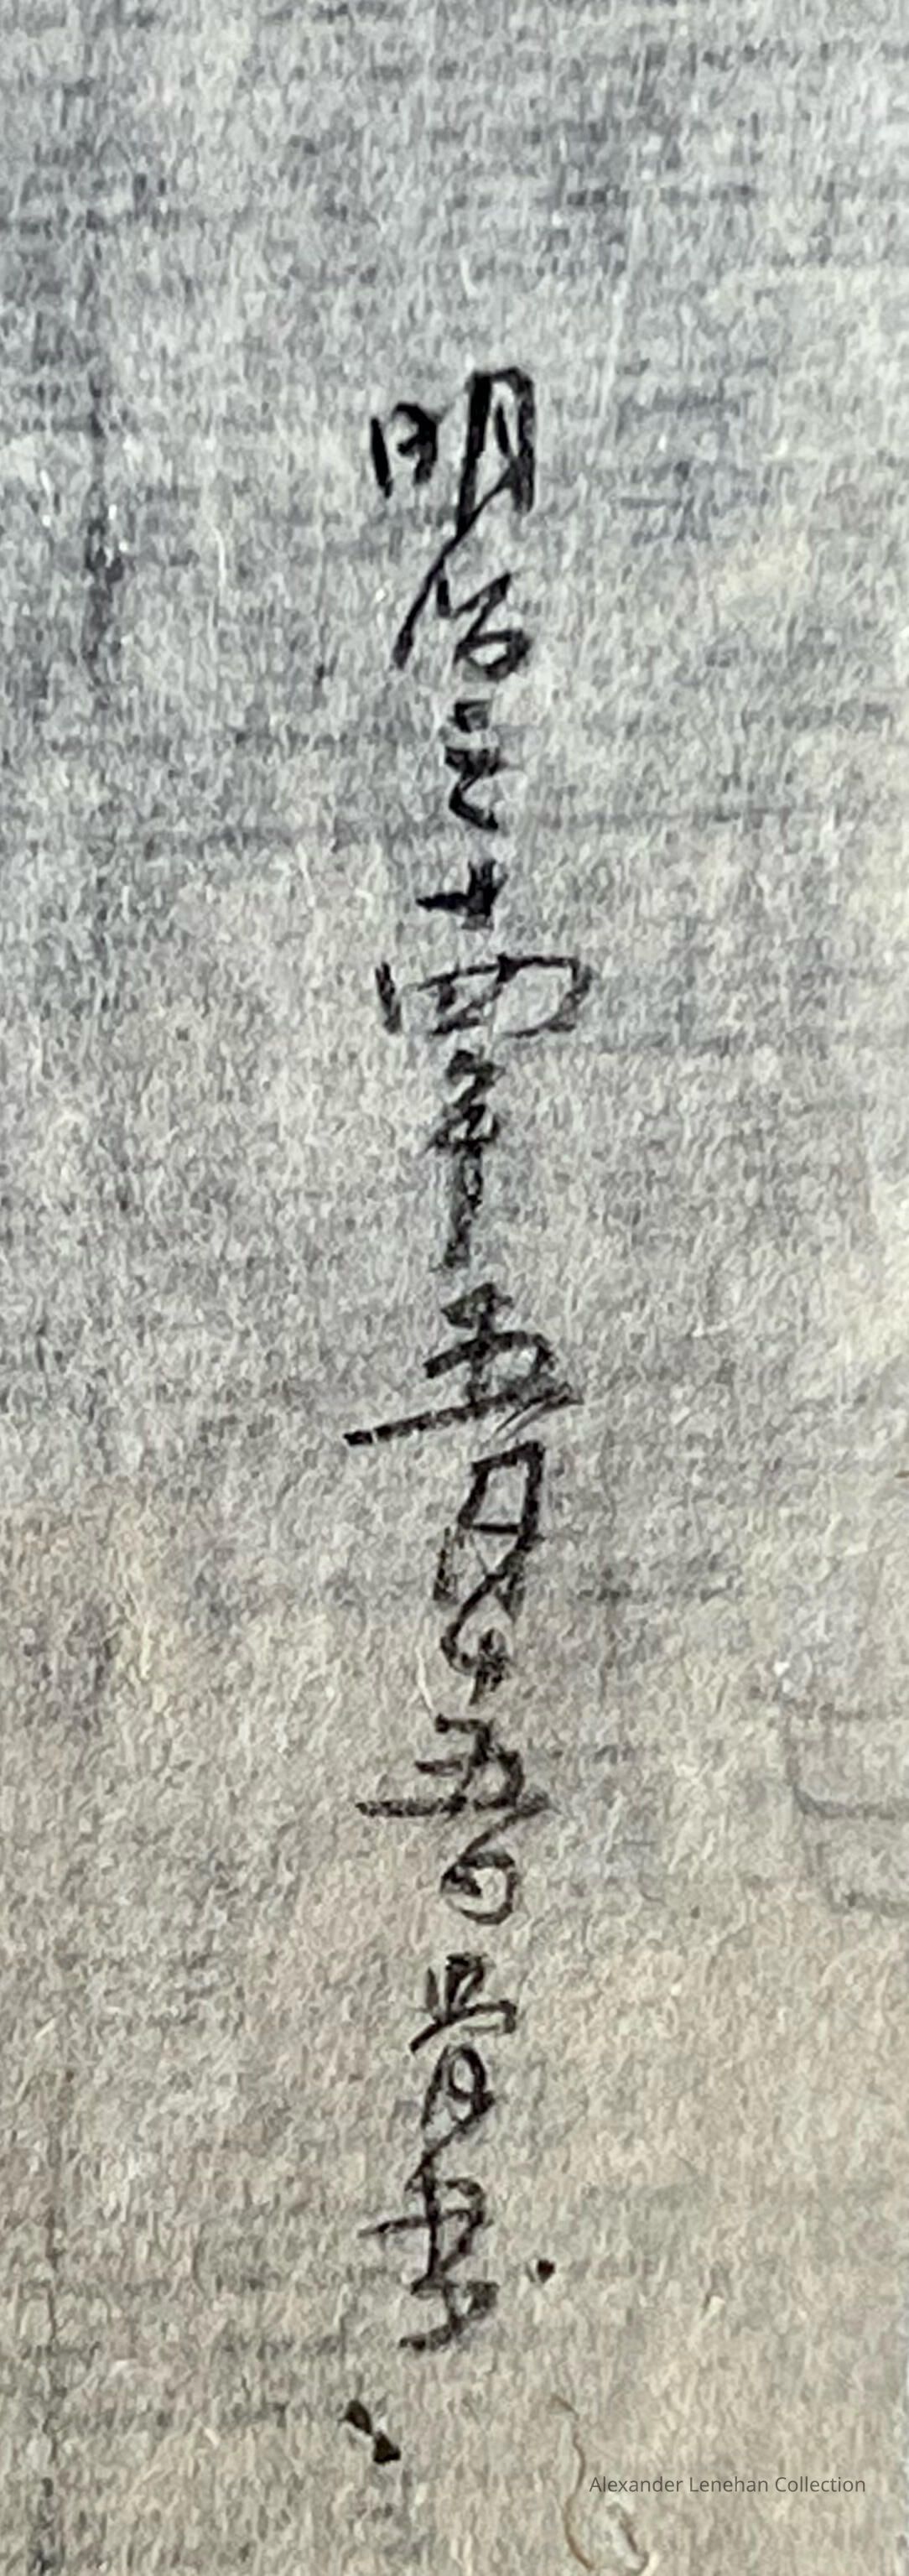 明治三十四年五月廿五日胃書
Alexander Lenehan Collection